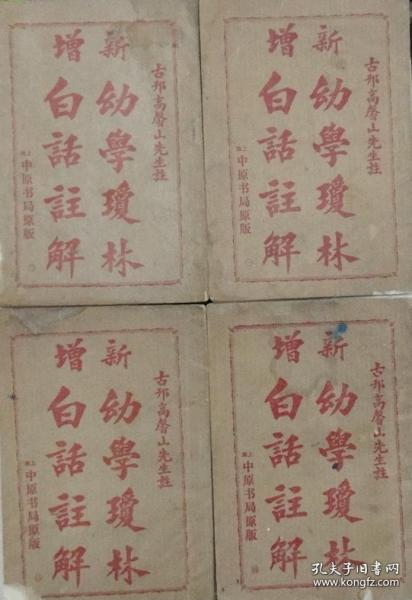 古邗高馨山先生註
新增
幼學瓊林
白話註解
上海中原书局原版
古邗高馨山先生註
新增
幼學瓊林
白話註解
上海中原书局原版
古邗高馨山先生註
新增
幼學瓊林
白話註解
上海中原书局原版
古邗高馨山先生註
新增
幼學瓊林
白話註解
上海中原书局原版
孔夫子旧书网
www.kongfz.com